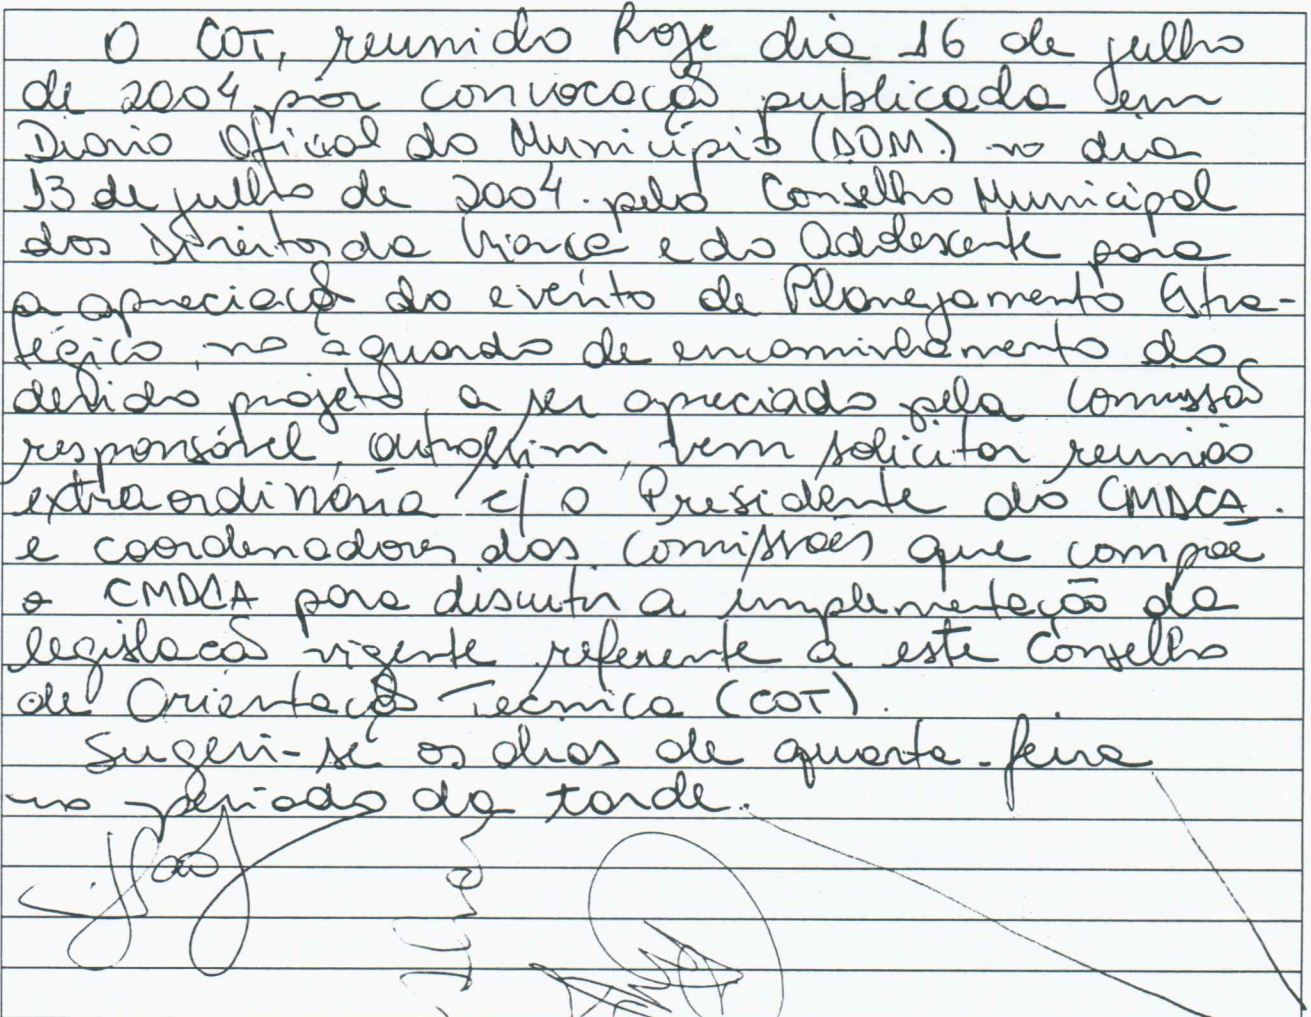 O COT, reunido hoje dia 16 de julho
de 2004 por convocação publicada em
Diario Oficial do Município (DOM.) no dia
13 de julho de 2004. pelo Conselho Municipal
dos Direitos da Criança e do Adolescente para
a apreciação do evento de Planejamento Estra-
tégico, no aguardo de encaminhamento do
devido projeto, a ser apreciado pela Comissão
responsável, outrossim, vem solicitar reunião
extraordinária c/ o Presidente do CMDCA.
e coordenadores das Comissões que compõe
o CMDCA para discutir a implementação da
legislação vigente referente a este Conselho
de Orientação Tecnica (COT).
Sugeri-se os dias de quarta-feira
no periodo da tarde.